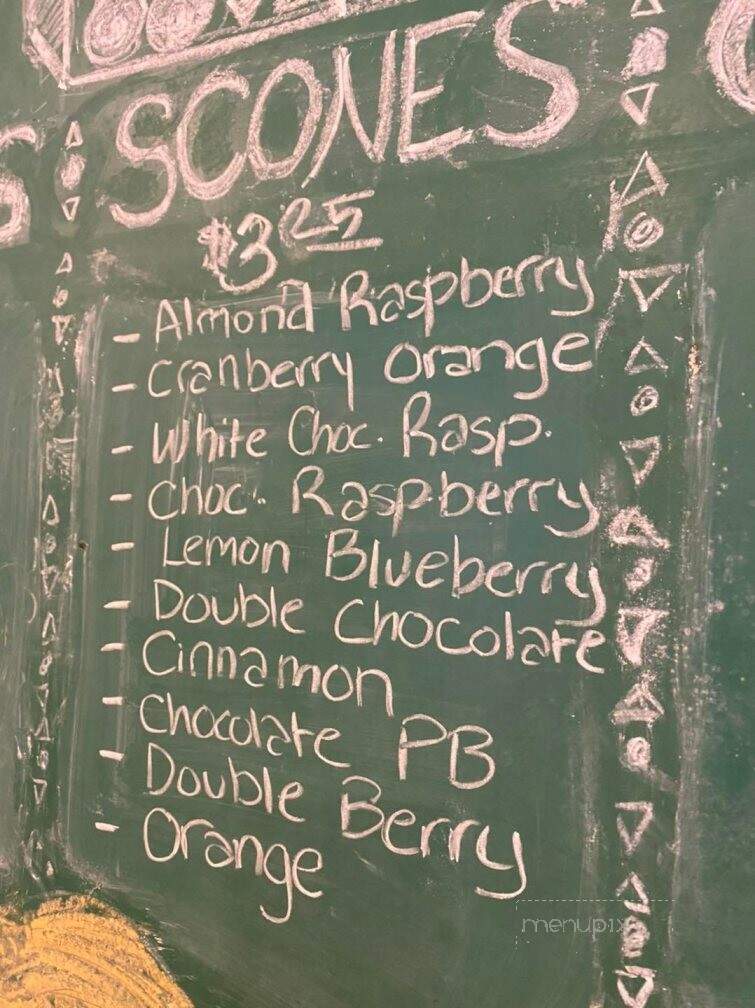 SCONES
$3 25
- Almond Raspberry
- Cranberry Orange
- White Choc. Rasp.
- Choc. Raspberry
- Lemon Blueberry
- Double Chocolate
- Cinnamon
- Chocolate PB
- Double Berry
- Orange
menupix